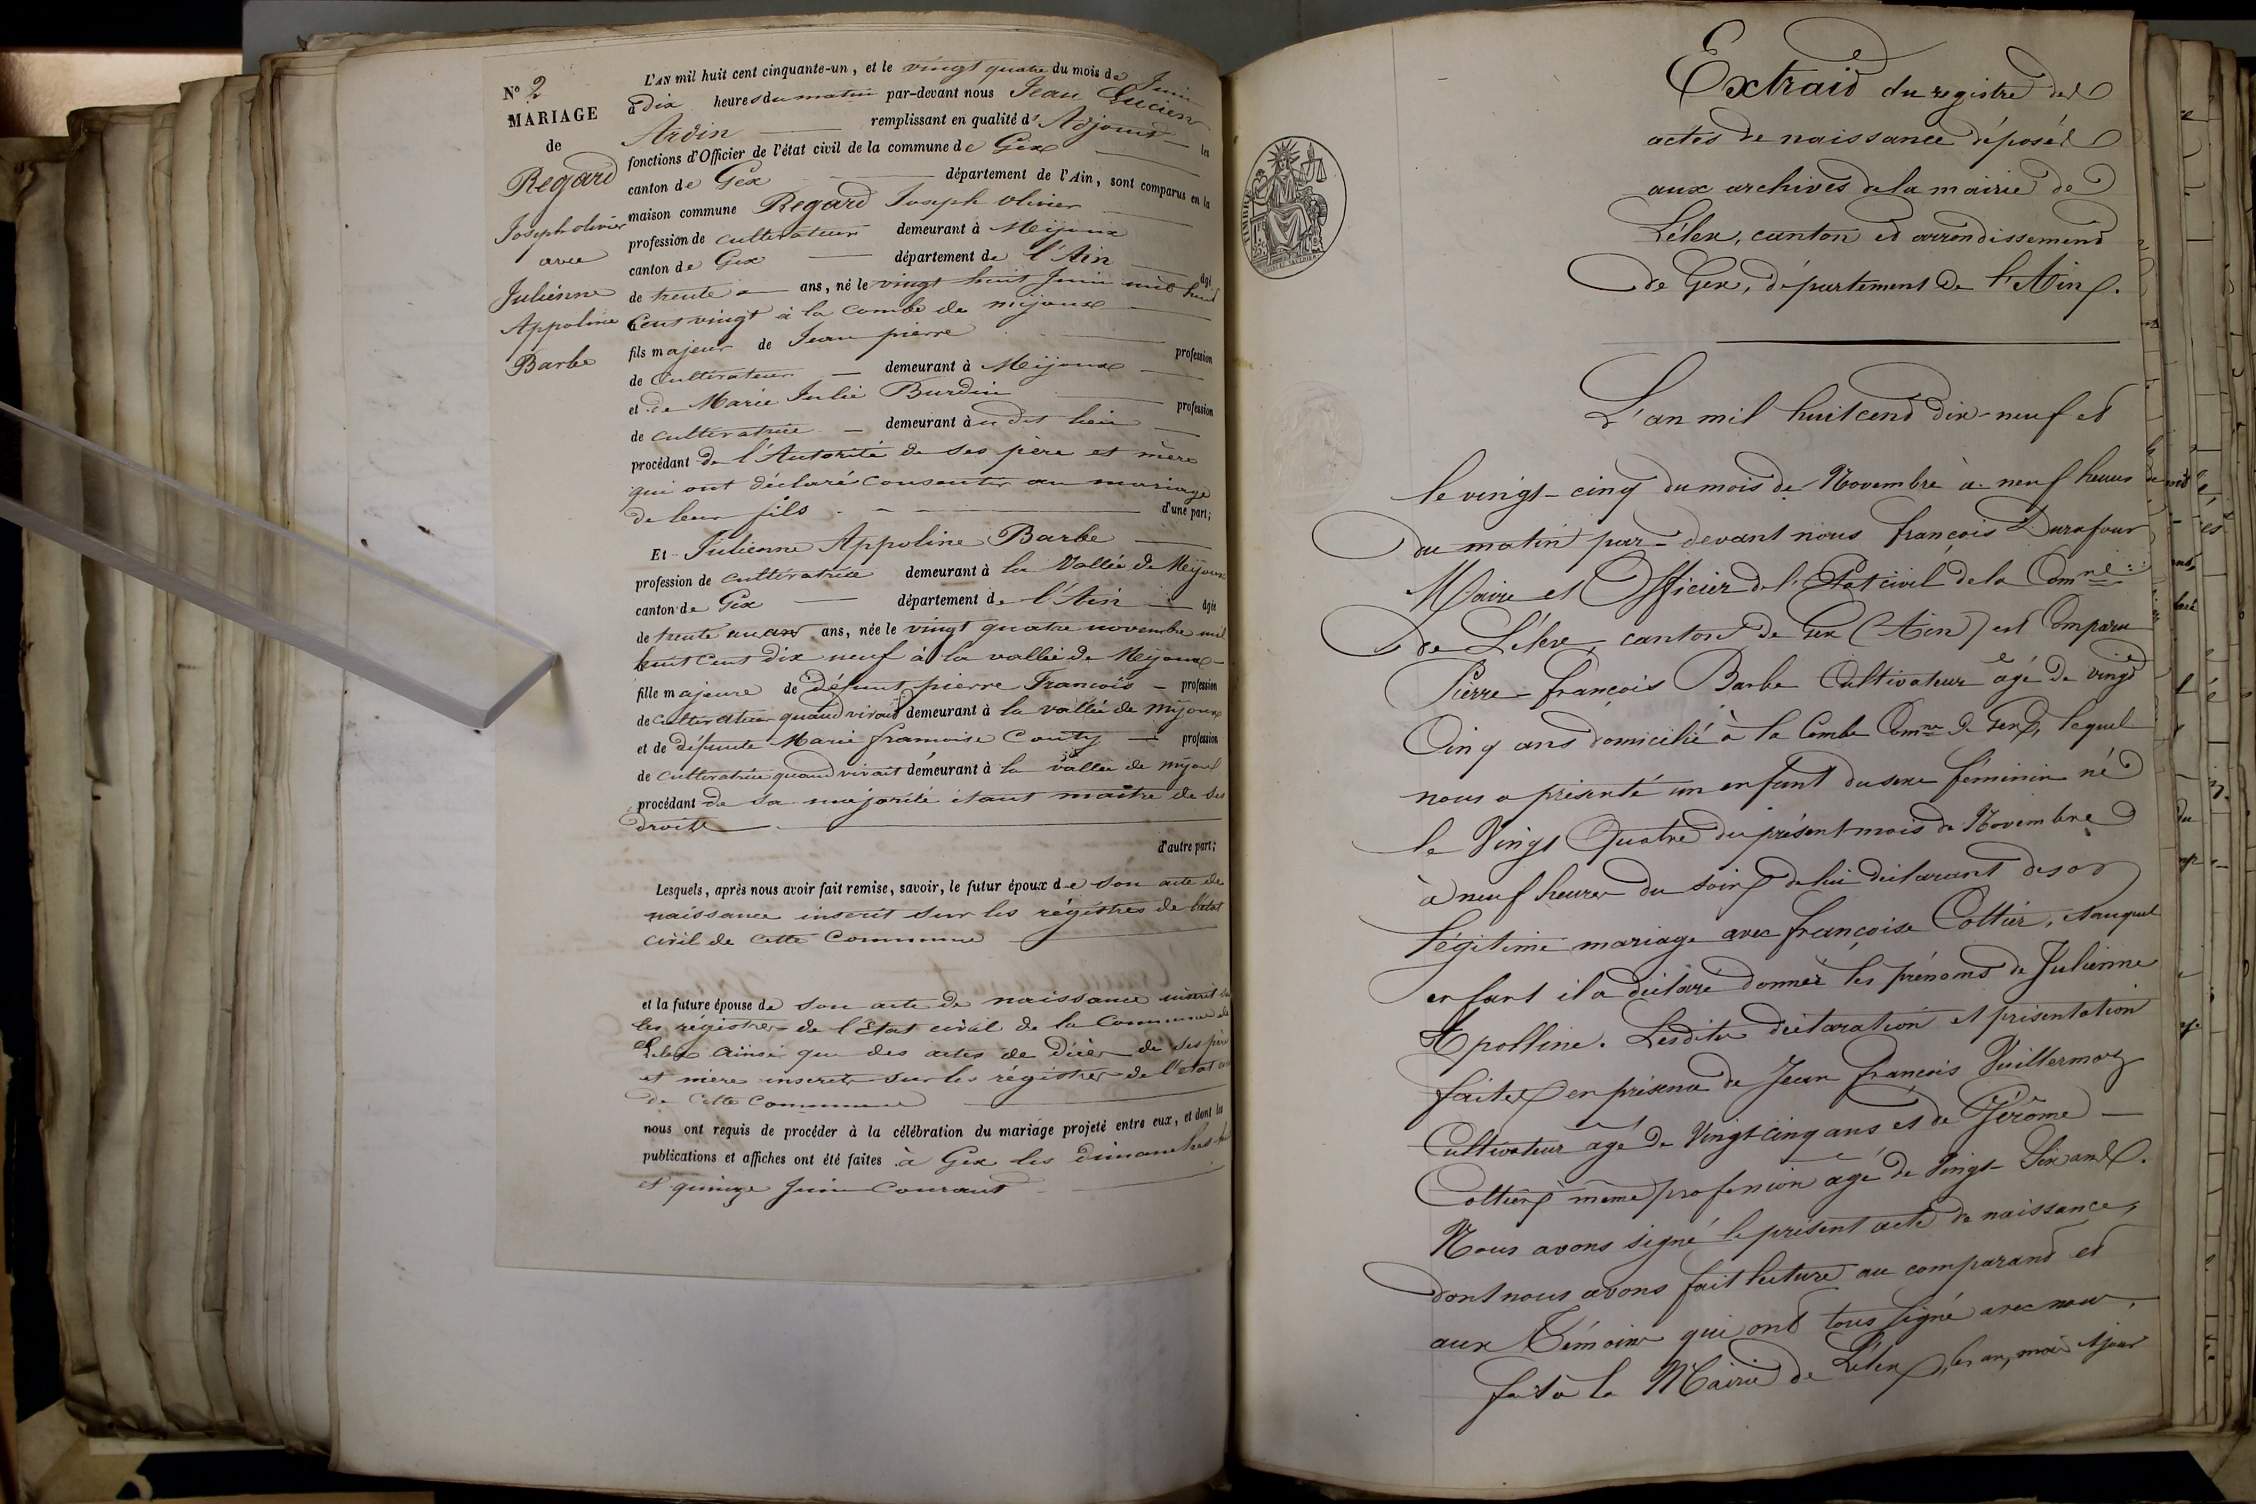 N° 2
MARIAGE
de
Regard
Joseph olivier
avec
Julienne
Appoline
Barbe
L'AN mil huit cent cinquante-un, et le vingt quatre du mois de Juin
à dix heures du matin par-devant nous Jean Lucien
Ardin remplissant en qualité d' Adjoint les
fonctions d'Officier de l'état civil de la commune de Gex
canton de Gex département de l'Ain, sont comparus en la
maison commune Regard Joseph olivier
profession de cultivateur demeurant à Mijoux
canton de Gex département de l'Ain âgé
de trente ans, né le vingt huit Juin mil huit
Cent vingt à la Combe de mijoux
fils majeur de Jean pierre profession
de Cultivateur demeurant à Mijoux
et de Marie Julie Burdin profession
de cultivatrice demeurant au dit lieu
procédant de l'Autorité de ses père et mère
qui ont déclaré consentir au mariage
de leur fils d'une part;
Et Julienne Appoline Barbe
profession de cultivatrice demeurant à la Vallée de Mijoux
canton de Gex département de l'Ain âgée
de trente un ans ans, née le vingt quatre novembre mil
huit Cent dix neuf à la vallée de Mijoux
fille majeure de défunt pierre François profession
de cultivateur quand vivait demeurant à la vallée de mijoux
et de défunte Marie françoise Couty profession
de cultivatrice quand vivait demeurant à la vallée de mijoux
procédant de sa majorité étant maître de ses
droits
d'autre part;
Lesquels, après nous avoir fait remise, savoir, le futur époux de son acte de
naissance inscrit sur les régistres de l'état
civil de cette Commune
et la future épouse de son acte de naissance inscrit sur
les régistres de l'Etat civil de la Commune de
Lelex ainsi que des actes de décès de ses père
et mère inscrits sur les régistres de l'état civil
de cette Commune
nous ont requis de procéder à la célébration du mariage projeté entre eux, et dont les
publications et affiches ont été faites à Gex les dimanches
et quinze Juin Courant
Extrait du registre des
actes de naissance déposés
aux archives de la mairie de
Lélex, canton et arrondissement
de Gex, département de l'Ain.
L'an mil huit cent dix-neuf et
le vingt-cinq du mois de Novembre à neuf heures
du matin par-devant nous françois Durafour
Maire et Officier de l'Etat civil de la Comne
de Lélex, canton de Gex (Ain) est Comparu
Pierre-françois Barbe Cultivateur âgé de vingt
Cinq ans domicilié à la Combe Comne de Gex, lequel
nous a présenté un enfant du sexe féminin né
le Vingt Quatre du présent mois de Novembre
à neuf heures du soir de lui déclarant de son
légitime mariage avec françoise Cottier, et auquel
enfant il a déclaré donner les prénoms de Julienne
Apolline. Lesdites déclaration et présentation
faites en présence de Jean françois Vuillermoz
Cultivateur âgé de Vingt cinq ans et de Jérôme
Cottier même profession âgé de Vingt-Six ans.
Nous avons signé le présent acte de naissance,
dont nous avons fait lecture au comparant et
aux Témoins qui ont tous signé avec nous.
fait à la Mairie de Lélex, les an, mois et jour